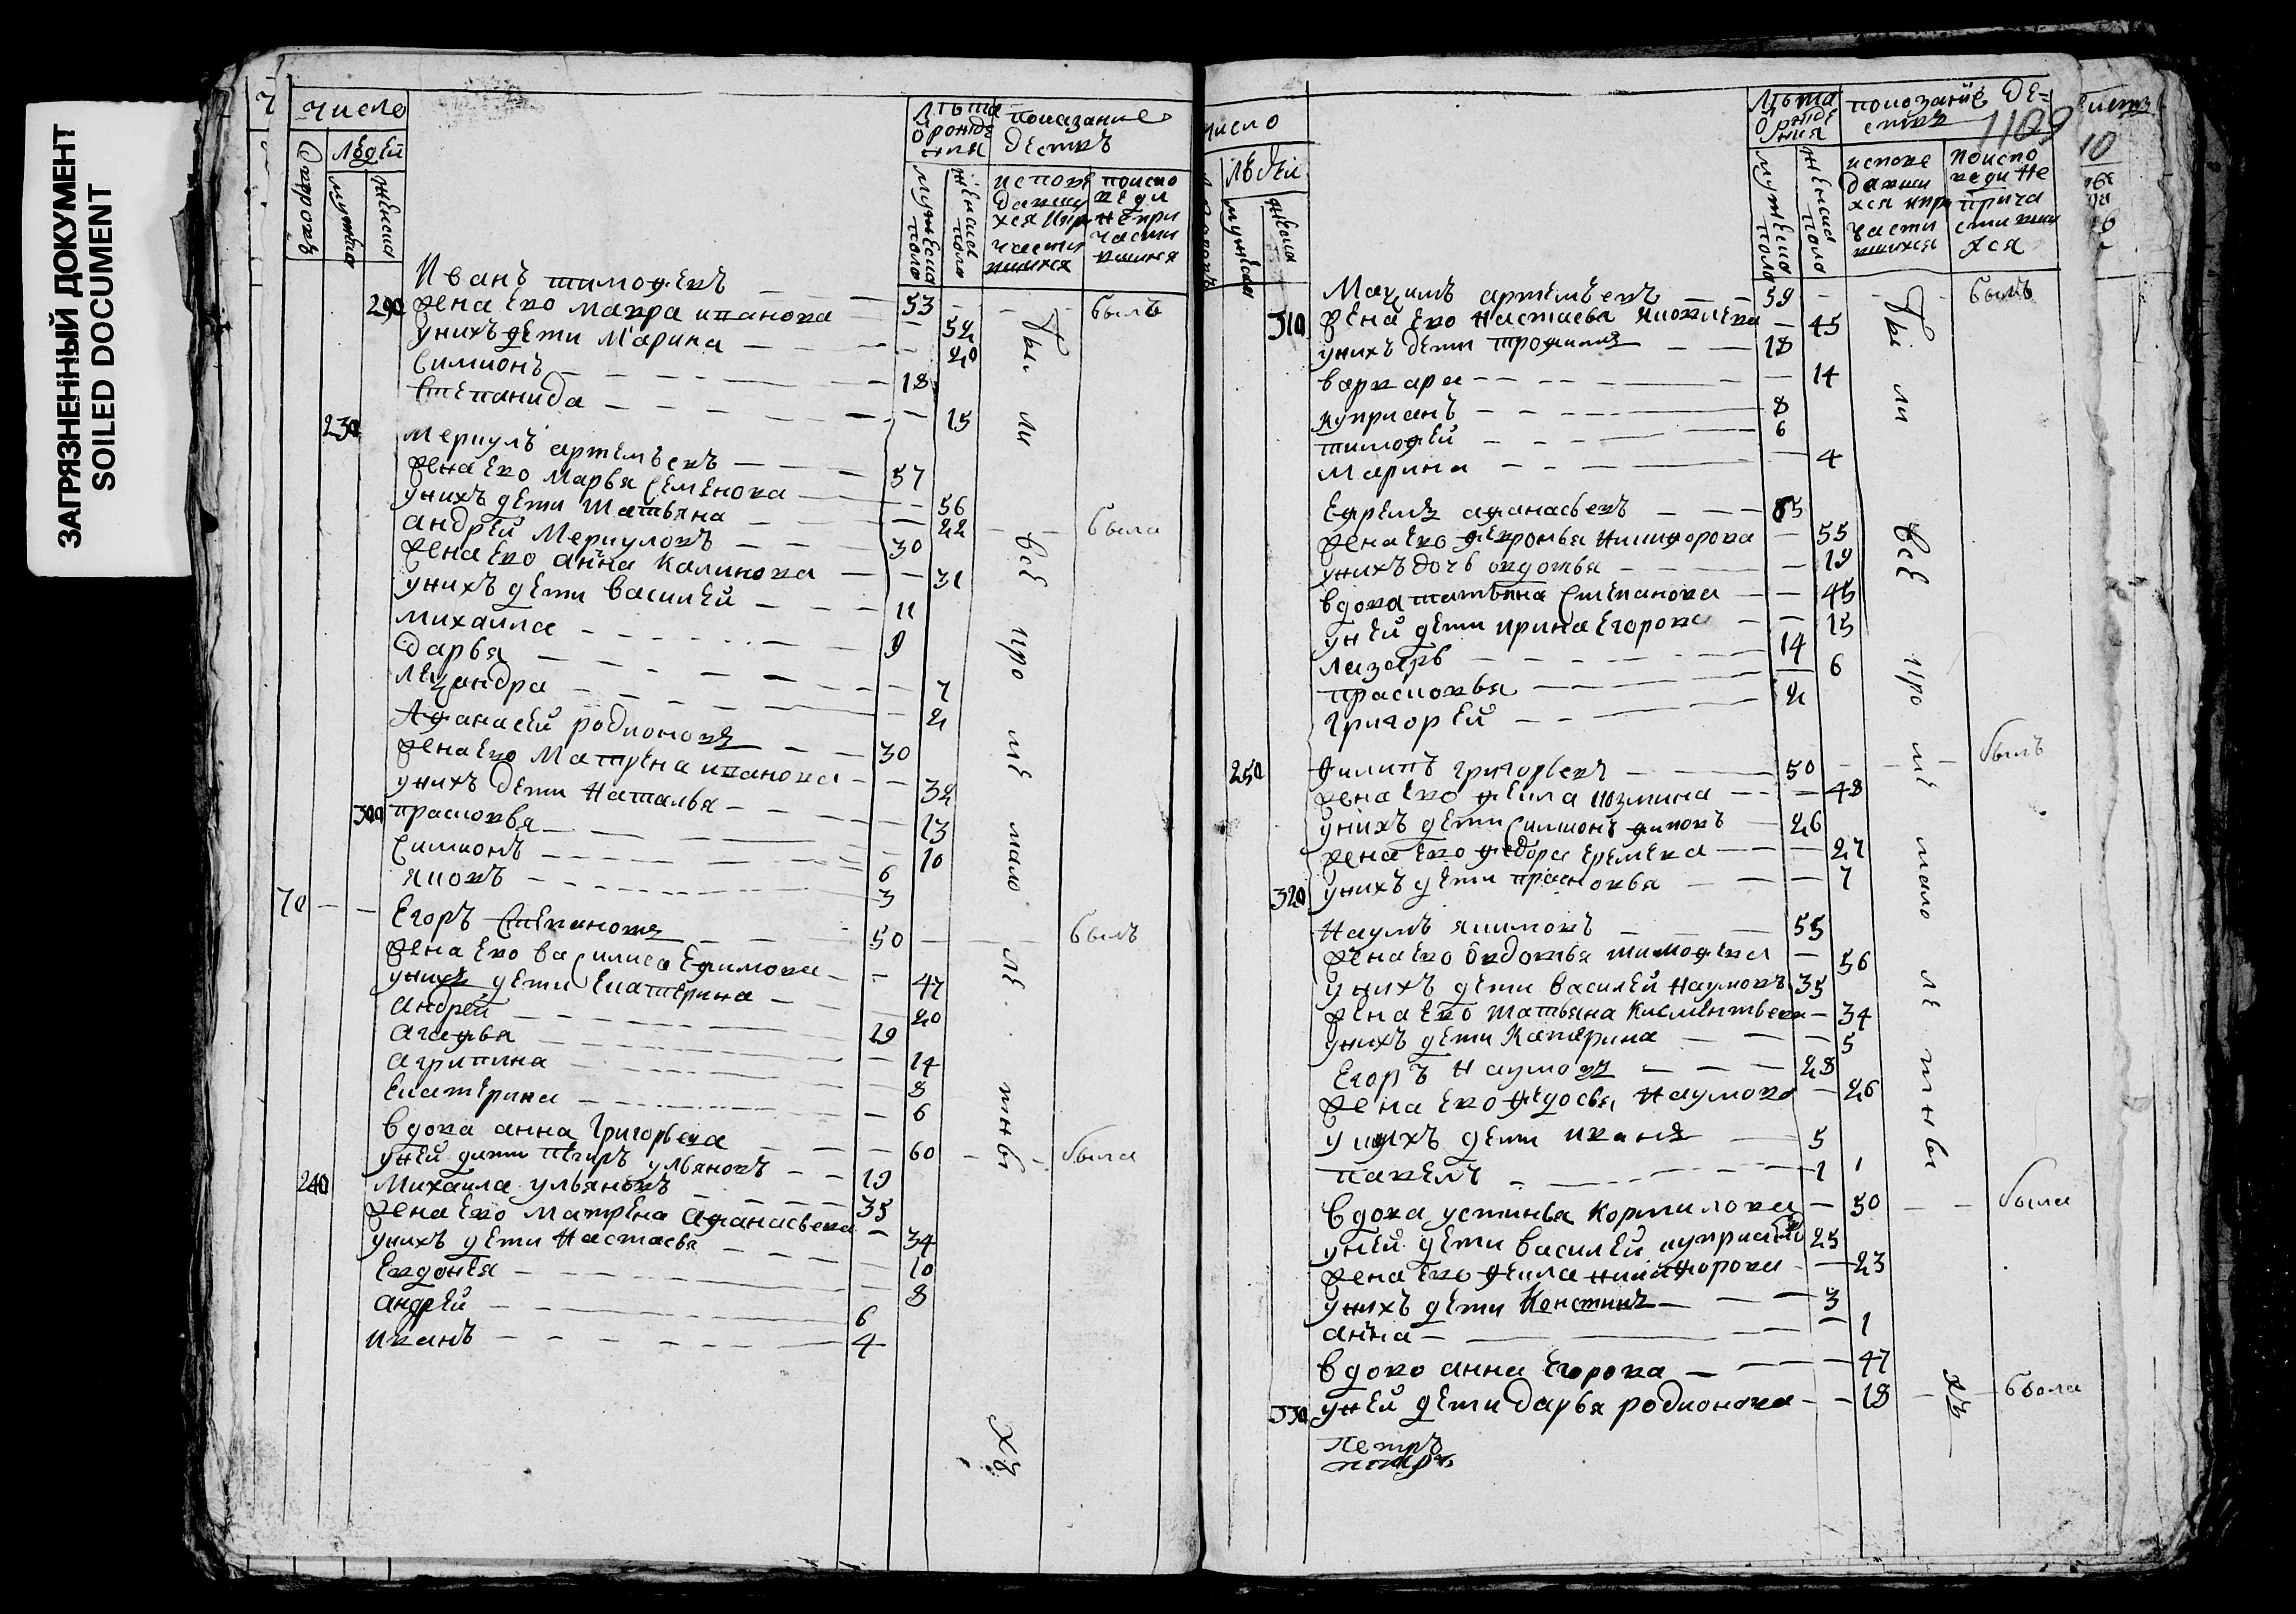 ЗАГРЯЗНЕННЫЙ ДОКУМЕНТ
SOILED DOCUMENT
число
людей
мужска
женска
лѣта
ѿ рожде
ния
мужеска
пола
женска
пола
показание
действъ
испове
давши
хся и при
части
вшихся
поиспо
веди
непри
части
вшихся
Иванъ тимофѣевъ — — 53 былъ
290 жена Ево мавра иванова — 52
унихъ дети марина — — — 20
Симионъ — — — 18
Степанида — — — 15
230 Меркулъ артемъевъ — — — 57
жена Ево марья Семенова — 56
унихъ дети татьяна — — 22 была
андрей Меркуловъ — — — 30
жена Ево анна Калинова — — 31
унихъ дети василей — — — 11
михаила — — — 9
дарья — — — 7
леѯандра — — — 2
Афанасей родионовъ — — 30
жена Ево Матрена иванова — — 32
унихъ дети наталья — — — 13
300 прасковья — — — 10
Симионъ — — — 6
яковъ — — — 3
70 — — Егоръ Степановъ — — 50 — — былъ
жена Ево василиса Ефимова — — 47
унихъ дети Екатерина — — 20
андрей — — — 19
агафья — — — 14
агрипина — — — 8
Екатерина — — — 6
вдова анна григорьева — — 60 — — была
уней дети петръ ульяновъ — — 19
240 михаила ульяновъ — — — 35
жена Ево матрена афанасьева — 34
унихъ дети настасья — — 10
Евдокея — — — 8
андрей — — — 6
иванъ — — — 4
бы ли все про ше мало ле тны хъ
число
людей
мужеска
женска
лѣта
ѿ рожде
ния
мужеска
пола
женска
пола
показание де=
ствъ
1109
испове
давши
хся и при
части
вшихся
поиспо
веди не
прича
стивши
хся
10
Маѯимъ артемьевъ — — 59 — — былъ
310 жена Ево настасья яковлева — 45
унихъ дети трофимъ — — 18
варвара — — — 14
куприанъ — — — 8
тимофей — — — 6
Марина — — — 4
Ефремъ афанасьевъ — — — 55
жена Ево февронья никифорова — 55
унихъ дочь овдотья — — — 19
вдова татьяна Степанова — — 45
уней дети ирина Егорова — — 15
лазарь — — — 14
прасковья — — — 6
григорей — — — 2
250 филипъ григорьевъ — — — 50 — — былъ
жена Ево фекла козмина — — — 48
унихъ дети Симионъ филиповъ — 26
жена Ево федора Еремева — — — 27
320 унихъ дети прасковья — — — 7
наумъ якимовъ — — — 55
жена Ево овдотья тимофева — 56
унихъ дети василей наумовъ 35
жена Ево татьяна Клементьева — 34
унихъ дети Катерина — — — 5
Егоръ наумовъ — — — 28
жена Ево федосья наумова — 26
у нихъ дети иванъ — 5
павелъ — — — 1
вдова устинья Кормилова — 50 — — была
уней дети василей куприановъ 25
жена Ево фекла никифорова — 23
унихъ дети Констинъ — — — 3
анна — — — 1
вдова анна Егорова — — — 47
330 уней дети дарья родионова — — 18 — — была
петръ
бы ли все про ше мало ле тны хъ